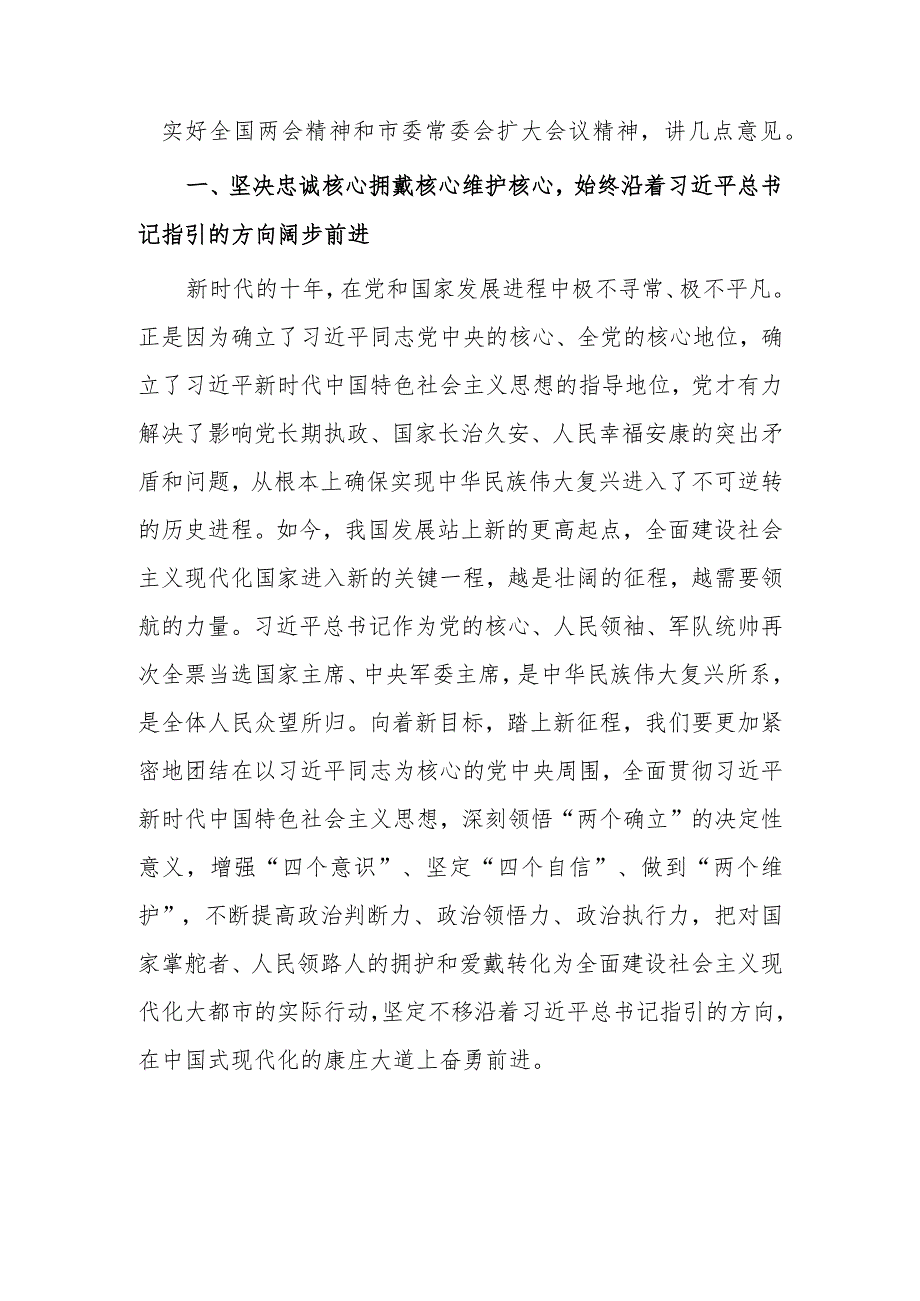 实好全国两会精神和市委常委会扩大会议精神，讲几点意见。
一、坚决忠诚核心拥戴核心维护核心，始终沿着习近平总书
记指引的方向阔步前进
新时代的十年，在党和国家发展进程中极不寻常、极不平凡。
正是因为确立了习近平同志党中央的核心、全党的核心地位，确
立了习近平新时代中国特色社会主义思想的指导地位，党才有力
解决了影响党长期执政、国家长治久安、人民幸福安康的突出矛
盾和问题，从根本上确保实现中华民族伟大复兴进入了不可逆转
的历史进程。如今，我国发展站上新的更高起点，全面建设社会
主义现代化国家进入新的关键一程，越是壮阔的征程，越需要领
航的力量。习近平总书记作为党的核心、人民领袖、军队统帅再
次全票当选国家主席、中央军委主席，是中华民族伟大复兴所系，
是全体人民众望所归。向着新目标，踏上新征程，我们要更加紧
密地团结在以习近平同志为核心的党中央周围，全面贯彻习近平
新时代中国特色社会主义思想，深刻领悟“两个确立”的决定性
意义，增强“四个意识”、坚定“四个自信”、做到“两个维
护”，不断提高政治判断力、政治领悟力、政治执行力，把对国
家掌舵者、人民领路人的拥护和爱戴转化为全面建设社会主义现
代化大都市的实际行动，坚定不移沿着习近平总书记指引的方向，
在中国式现代化的康庄大道上奋勇前进。